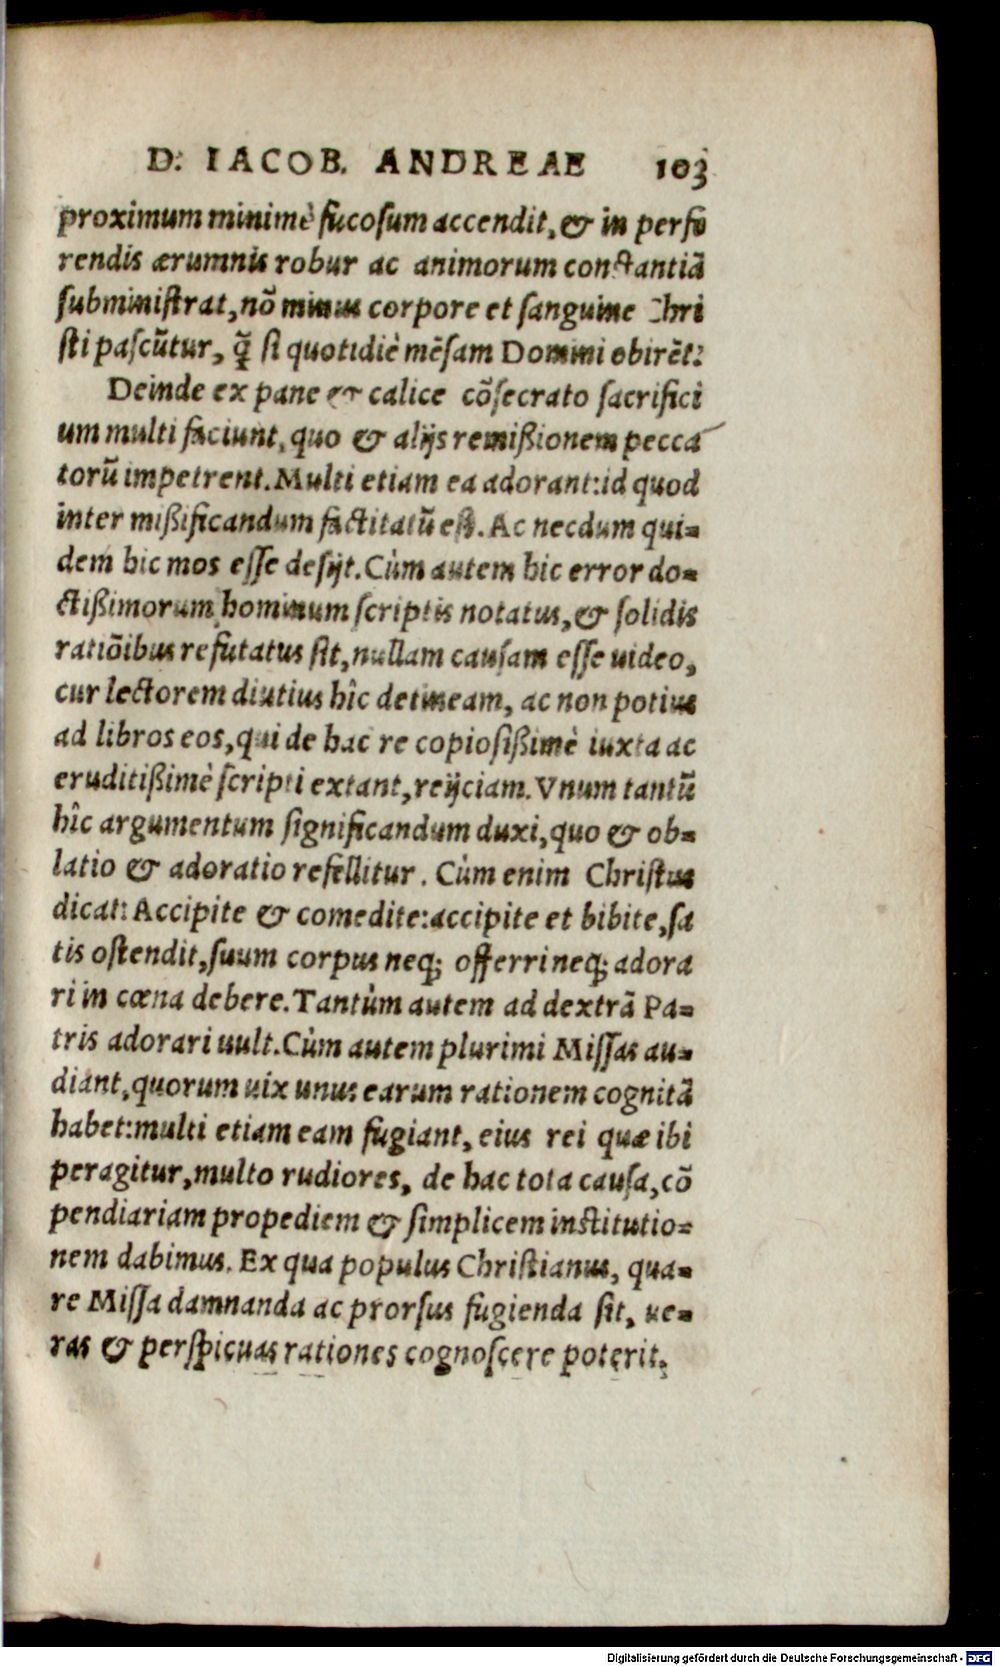 D. IACOB. ANDREAE 103
proximum minimè fucosum accendit, & in perfe
rendis ærumnis robur ac animorum constantiā
subministrat, nō minus corpore et sanguine Chri
sti pascūtur, q̄ si quotidiè mēsam Domini obirēt:
Deinde ex pane & calice cōsecrato sacrifici
um multi faciunt, quo & alijs remißionem pecca
torū impetrent. Multi etiam ea adorant: id quod
inter mißificandum factitatū est. Ac necdum qui-
dem hic mos esse desijt. Cùm autem hic error do-
ctißimorum hominum scriptis notatus, & solidis
ratiōibus refutatus sit, nullam causam esse uideo,
cur lectorem diutius hîc detineam, ac non potius
ad libros eos, qui de hac re copiosißimè iuxta ac
eruditißimè scripti extant, reijciam. Vnum tantū
hîc argumentum significandum duxi, quo & ob-
latio & adoratio refellitur. Cùm enim Christus
dicat: Accipite & comedite: accipite et bibite, sa
tis ostendit, suum corpus neq; offerri neq; adora
ri in cœna debere. Tantùm autem ad dextrā Pa-
tris adorari uult. Cùm autem plurimi Missas au-
diant, quorum uix unus earum rationem cognitā
habet: multi etiam eam fugiant, eius rei quæ ibi
peragitur, multo rudiores, de hac tota causa, cō
pendiariam propediem & simplicem institutio-
nem dabimus. Ex qua populus Christianus, qua-
re Missa damnanda ac prorsus fugienda sit, ue-
ras & perspicuas rationes cognoscere poterit.
Digitalisierung gefördert durch die Deutsche Forschungsgemeinschaft - DFG